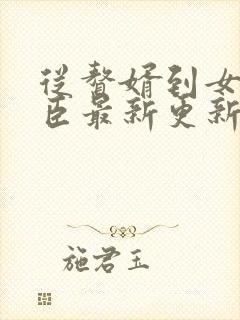 从贅婿到女
臣最新更新
施君玉